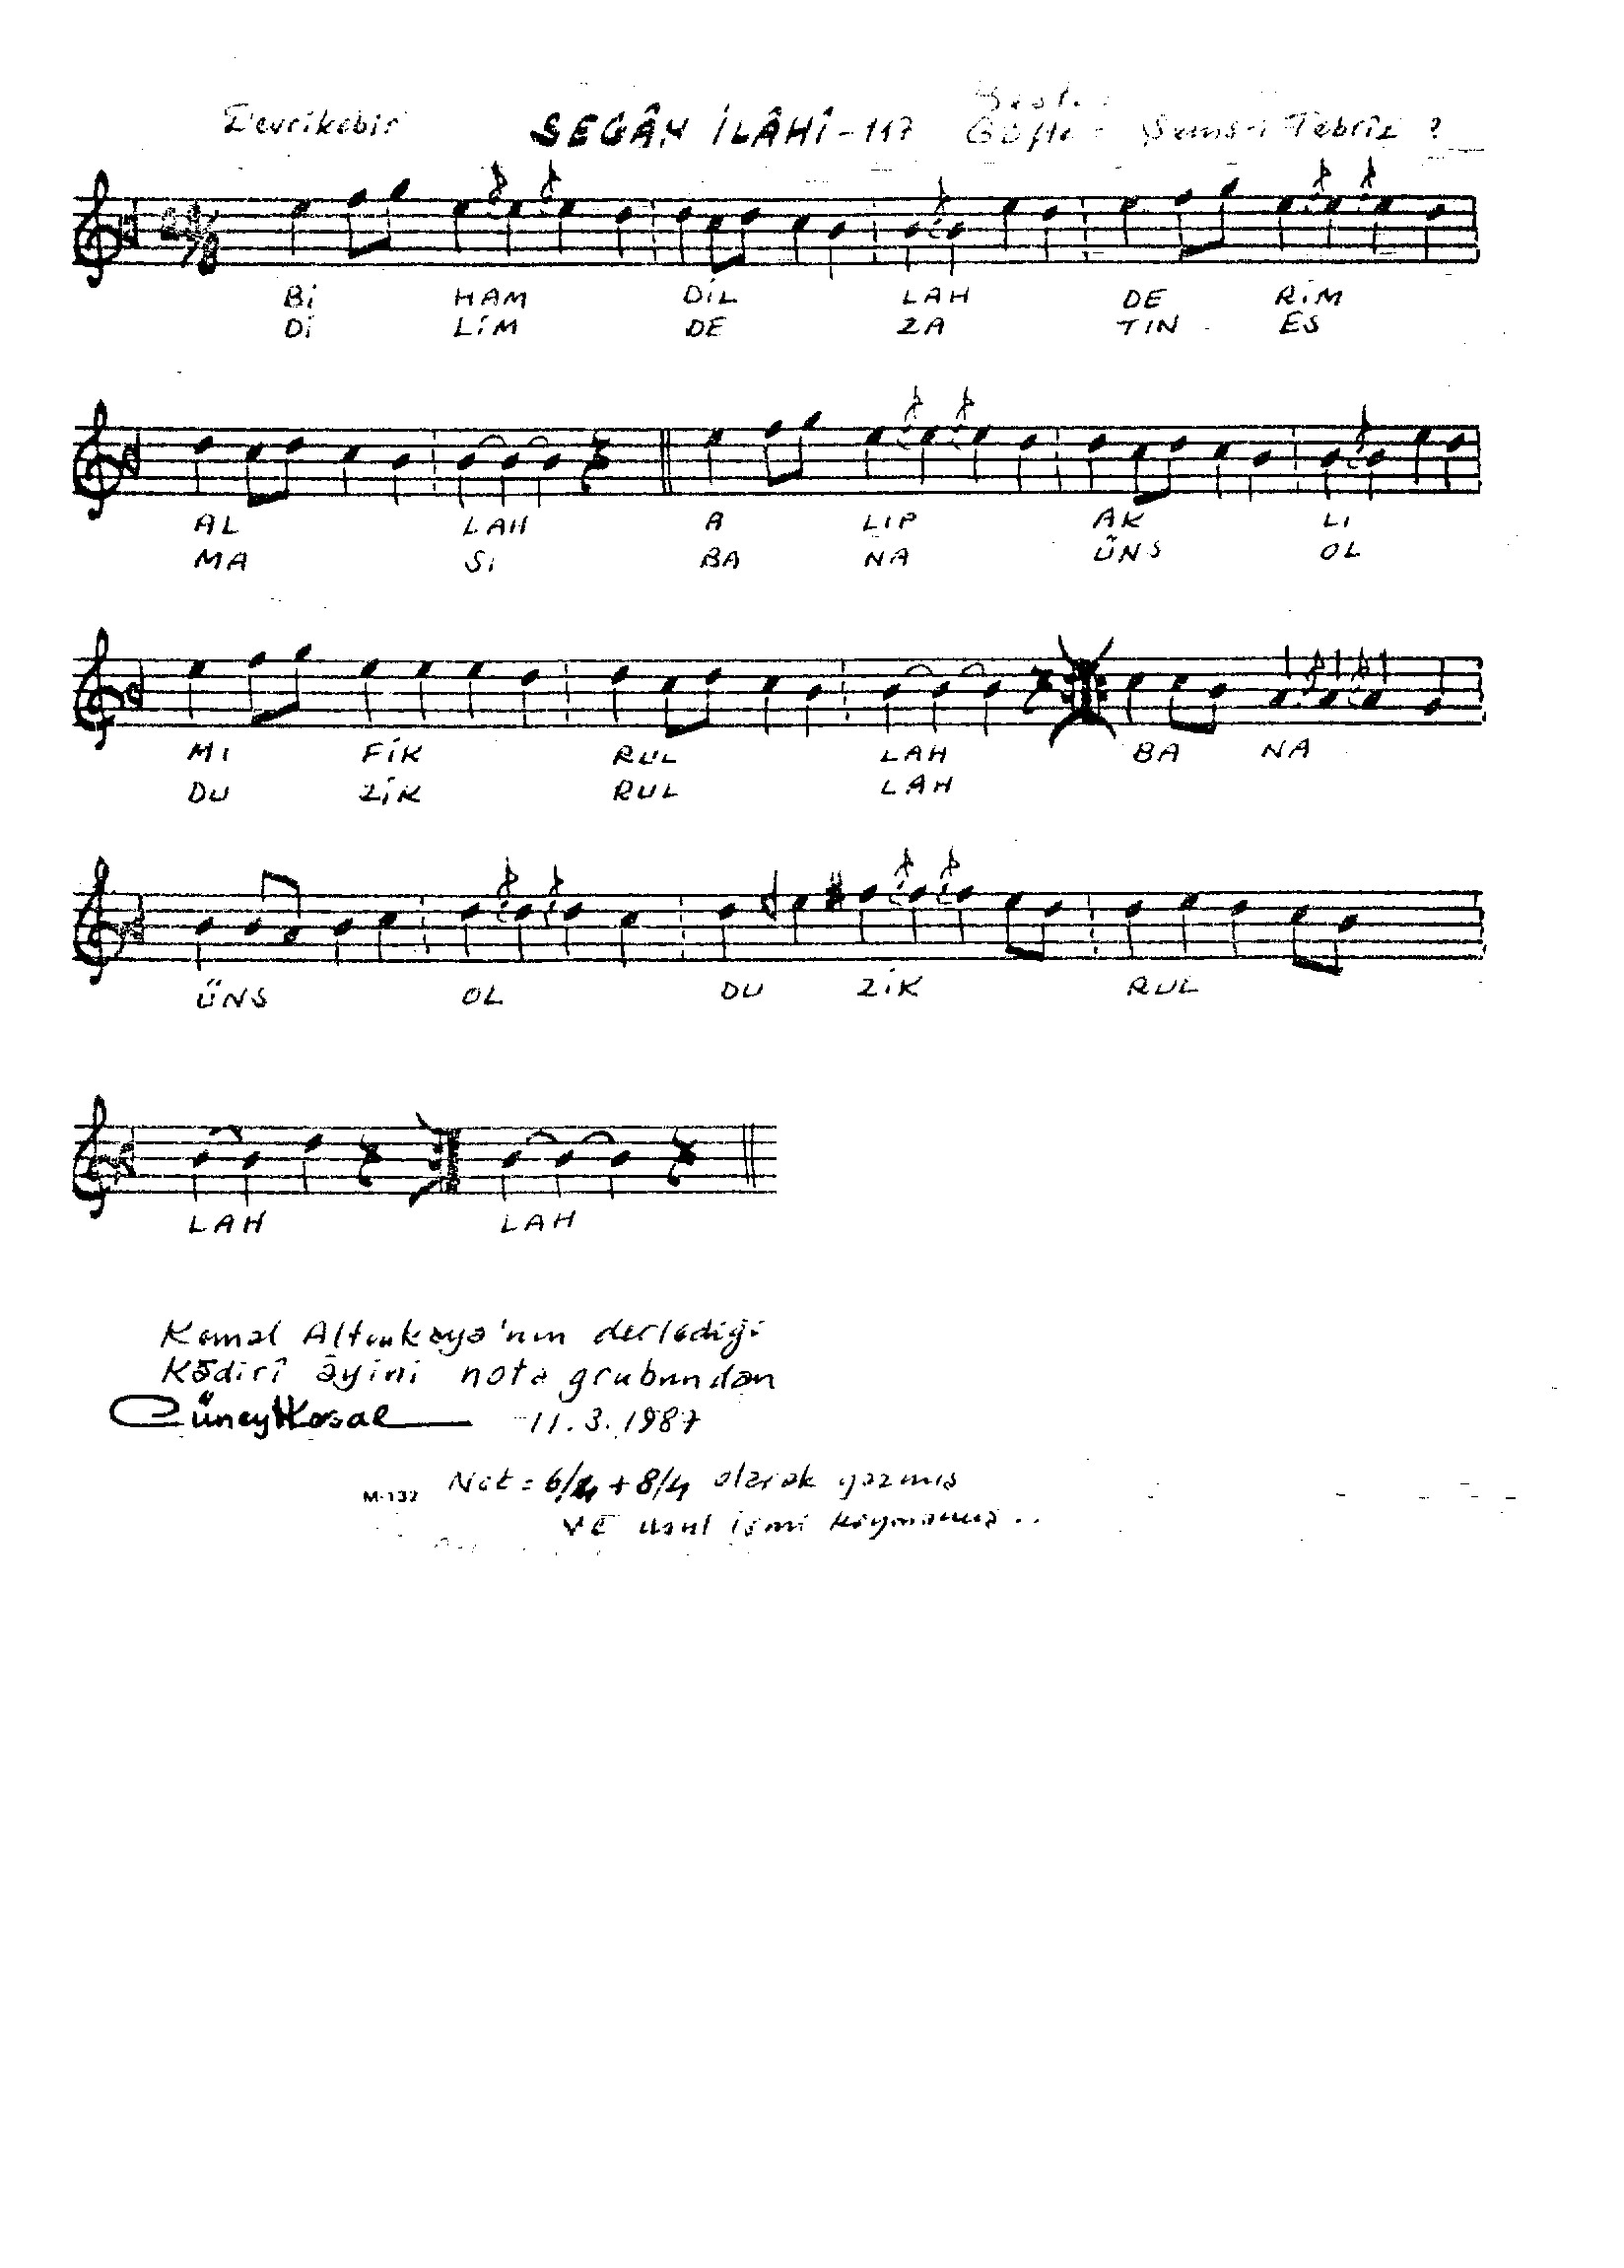 Devrikebir SEGÂH İLÂHÎ-117 Beste:
Güfte: Şems-i Tebrîz ?
Bİ HAM DİL LAH DE RİM
Dİ LİM DE ZA TIN ES
AL LAH A LIP AK LI
MA SI BA NA ÜNS OL
MI FİK RUL LAH BA NA
DU ZİK RUL LAH
ÜNS OL DU ZİK RUL
LAH LAH
Kemal Altınkaya'nın derlediği
Kādirî âyini nota grubundan
Cüneyt Kosal 11.3.1987
Not = 6/4 + 8/4 olarak yazmış
M-132
ve usul ismi koymamış..